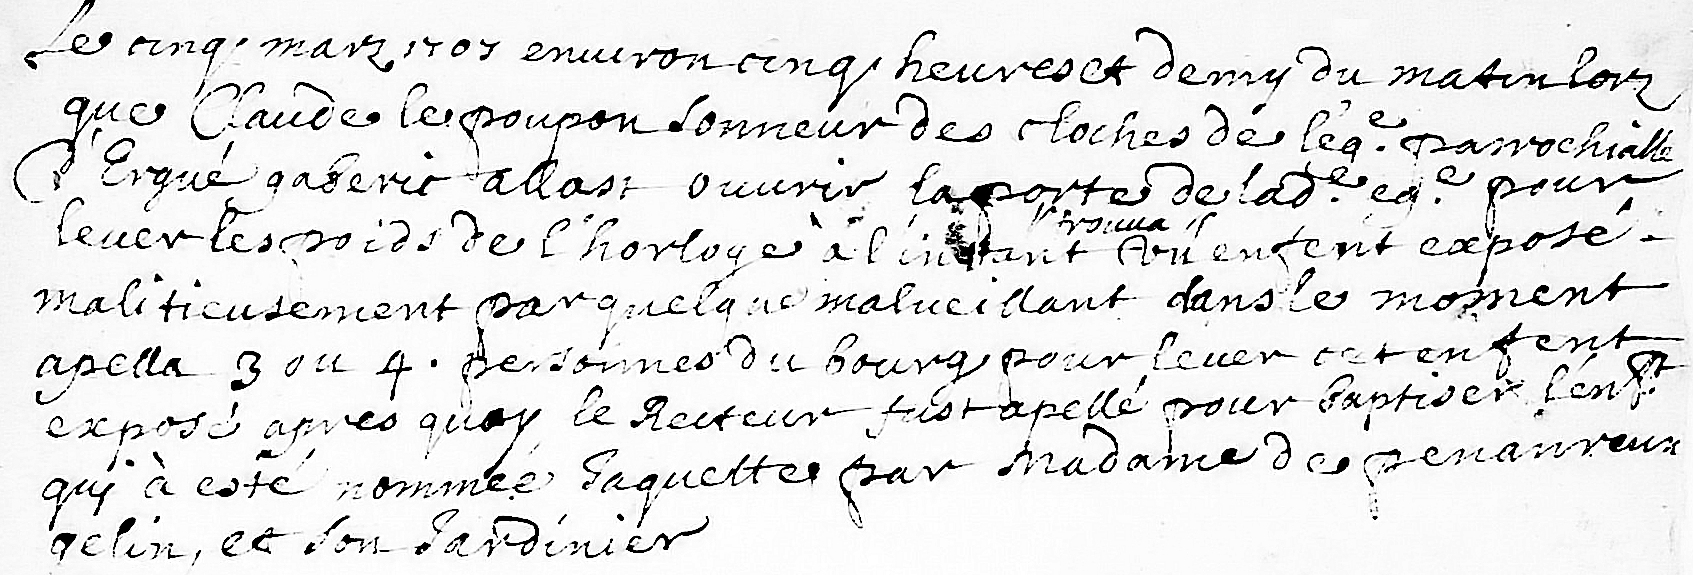 Le cinq. marz 1707 environ cinq. heures et demy du matin lorz
que Claude le poupon sonneur des cloches de l'ége. parrochialle
d'Ergué gaberic allast ouvrir la porte de lade. ege. pour
lever les poids de l'horloge à l'instant il trouva un enfent exposé -
malitieusement par quelque malveillant dans le moment
apella 3 ou 4. personnes du bourg pour lever cet enfent
exposé apres quoy le Recteur fust apellé pour baptiser l'enft
qui à esté nommée Jaquette par Madame de penanreun
gelin, et son Jardinier